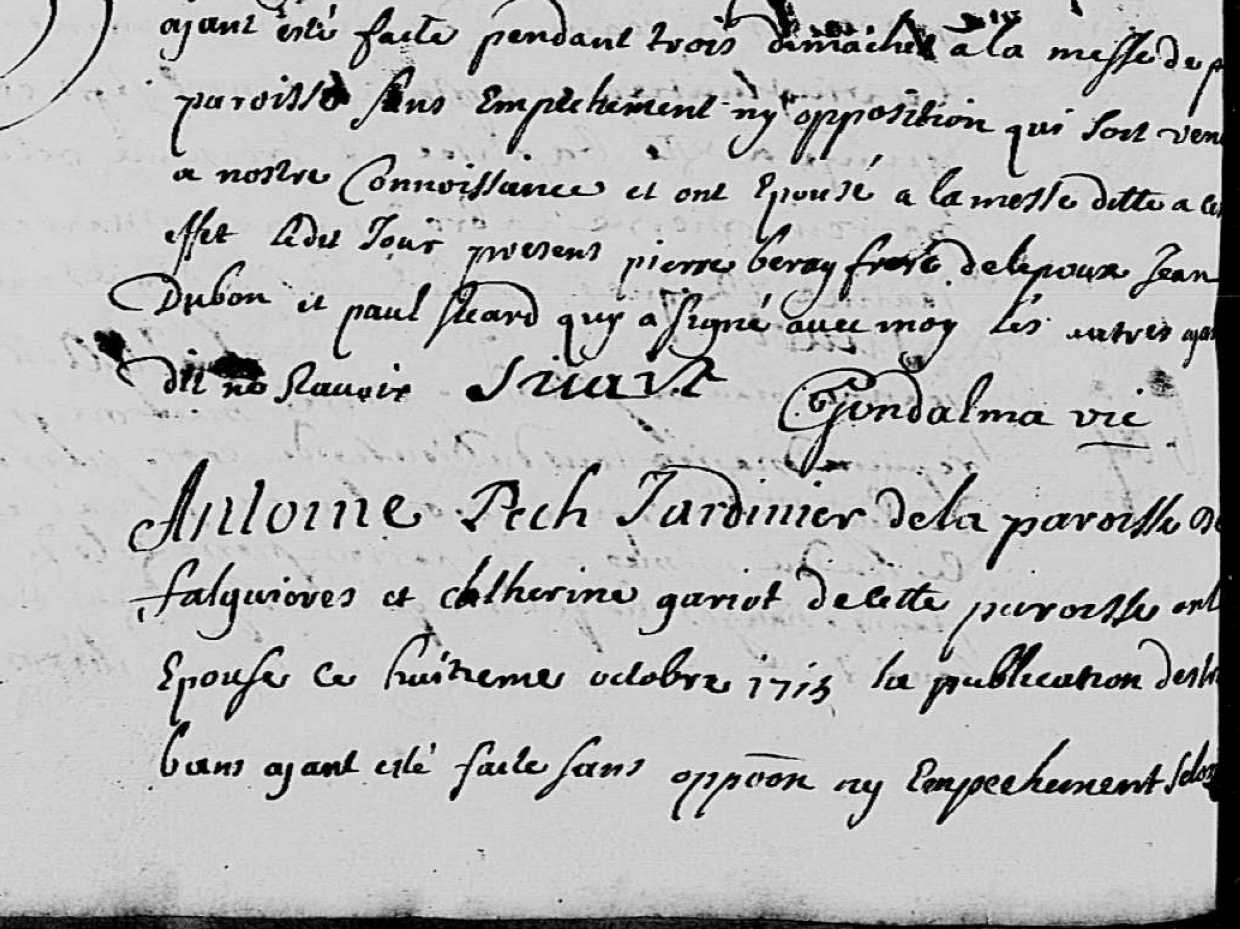 ajant esté faite pendant trois dimāches a la messe de p
paroisse sans Empechement ny opposition qui soit ven
a nostre Connoissance et ont Epousé a la messe ditte a cet
effet ledit Jour presens pierre beray frere de lepoux Jean
Dubon et paul sicard quy a signé avec moy les autres ajan
dit ne scavoir Gondalma vic
Antoine Pech Jardinier de la paroisse De
falguieres et Catherine gariot de cette paroisse ont
Epouse ce huitieme octobre 1715 la publication des
bans ajant esté faite sans oppōon ny Empechement selon